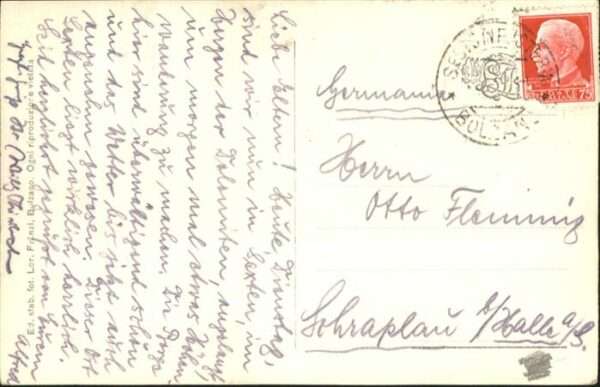 Liebe Eltern! Heute, Dienstag,
sind wir nun in Sexten, im
Herzen der Dolomiten, angelangt,
um morgen mal etwas Höhen-
wanderung zu machen. Die Berge
hier sind überwältigend schön
und das Wetter bis jetzt auch
angenehm gewesen. Dieser Ort
Sexten liegt wirklich herrlich.
Seid herzlichst gegrüßt von Eurem
Alfred
Ed. stab. fot. Lor. Fränzl, Bolzano. Ogni riproduzione vietata
BOLZANO
Germania
Herrn
Otto Flemming
Schraplau b/Halle a/S.